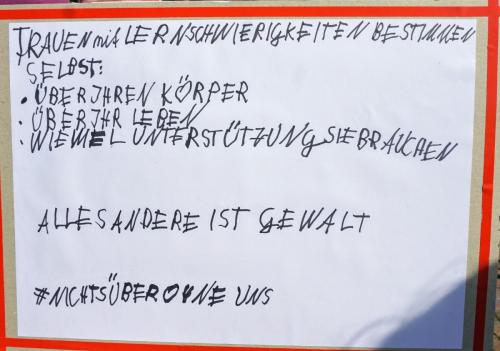 FRAUEN mit LERNSCHWIERIGKEITEN BESTIMMEN
SELBST:
• ÜBER JHREN KÖRPER
• ÜBER JHR LEBEN
• WIEMEL UNTERSTÜTZUNG SIE BRAUCHEN
ALLES ANDERE IST GEWALT
#NICHTS ÜBER OHNE UNS